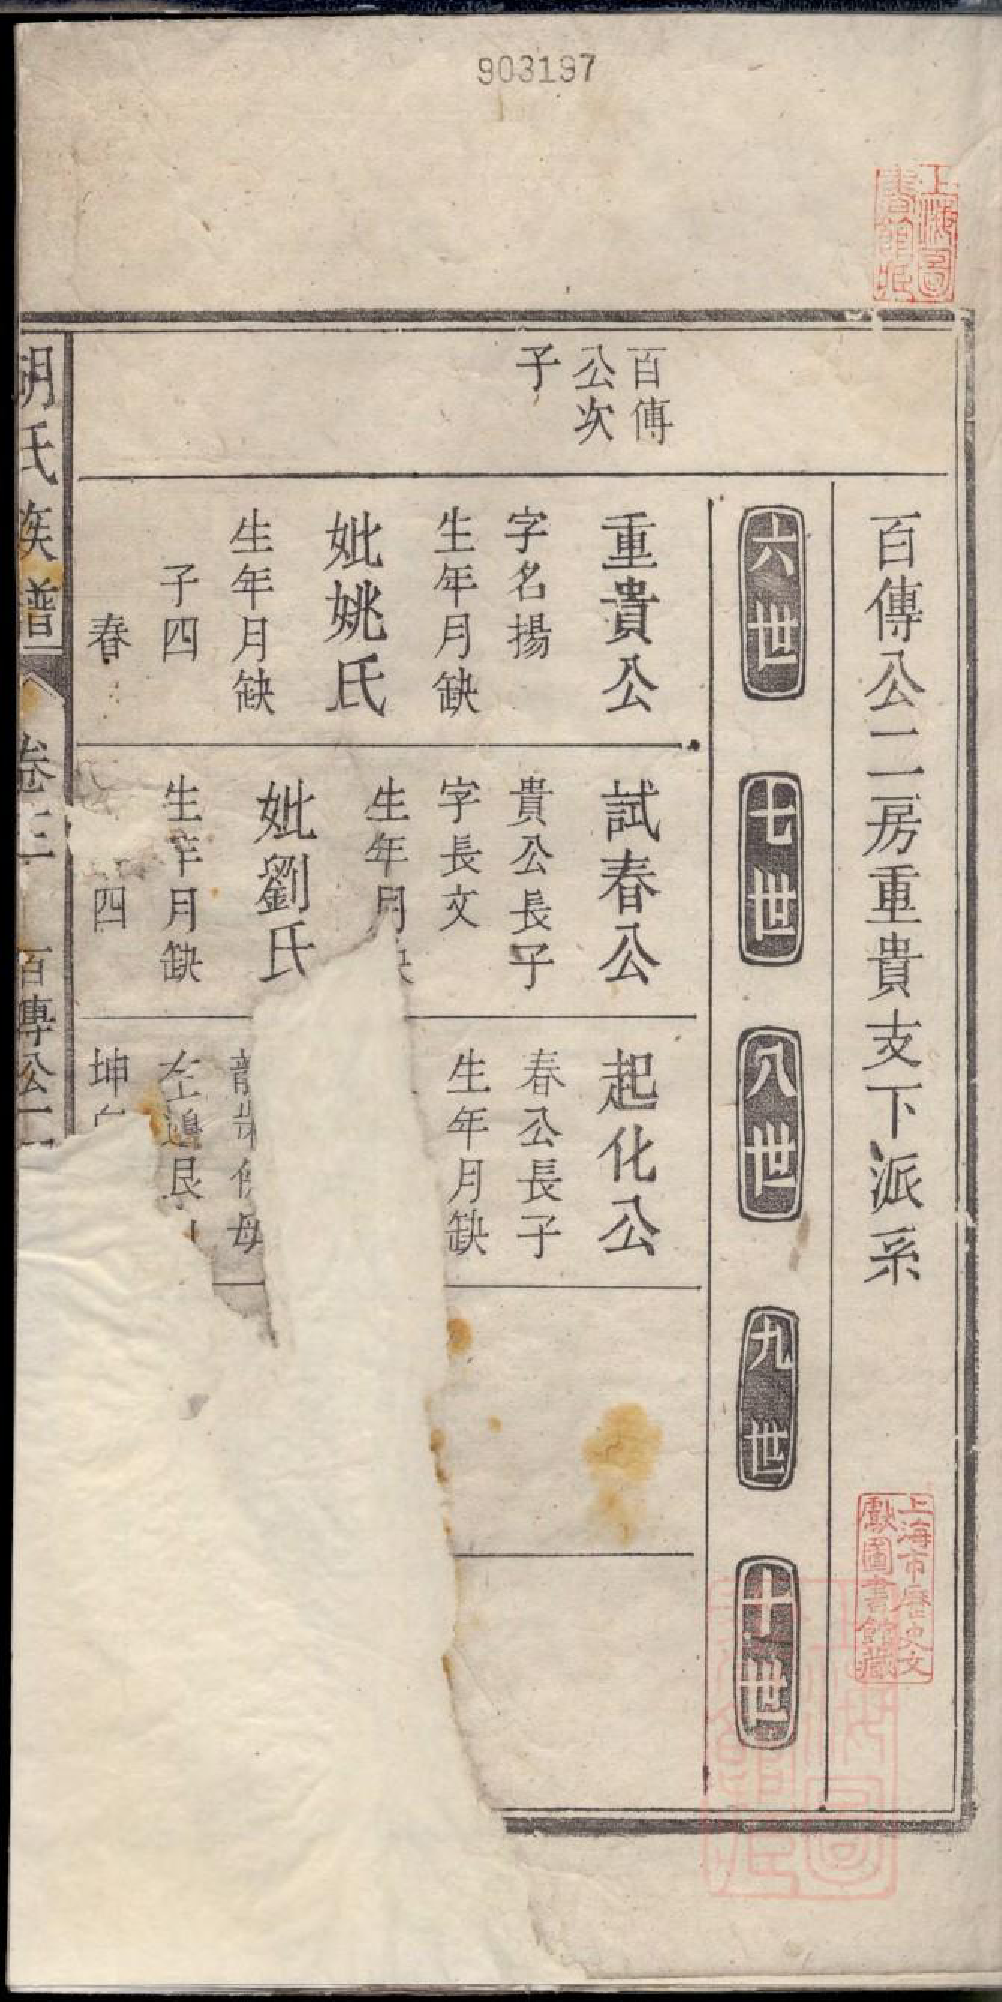 903197
上海圖書館藏
百傳公二房重貴支下派系
上海市歷史文獻圖書館藏
六世
七世
八世
九世
十世
百傳
公次
子
重貴公
字名揚
生年月缺
妣姚氏
生年月缺
子四
春
試春公
貴公長子
字長文
生年月
妣劉氏
生年月缺
四
起化公
春公長子
生年月缺
母
左邊艮
坤
胡氏族譜
卷三
百傳公二